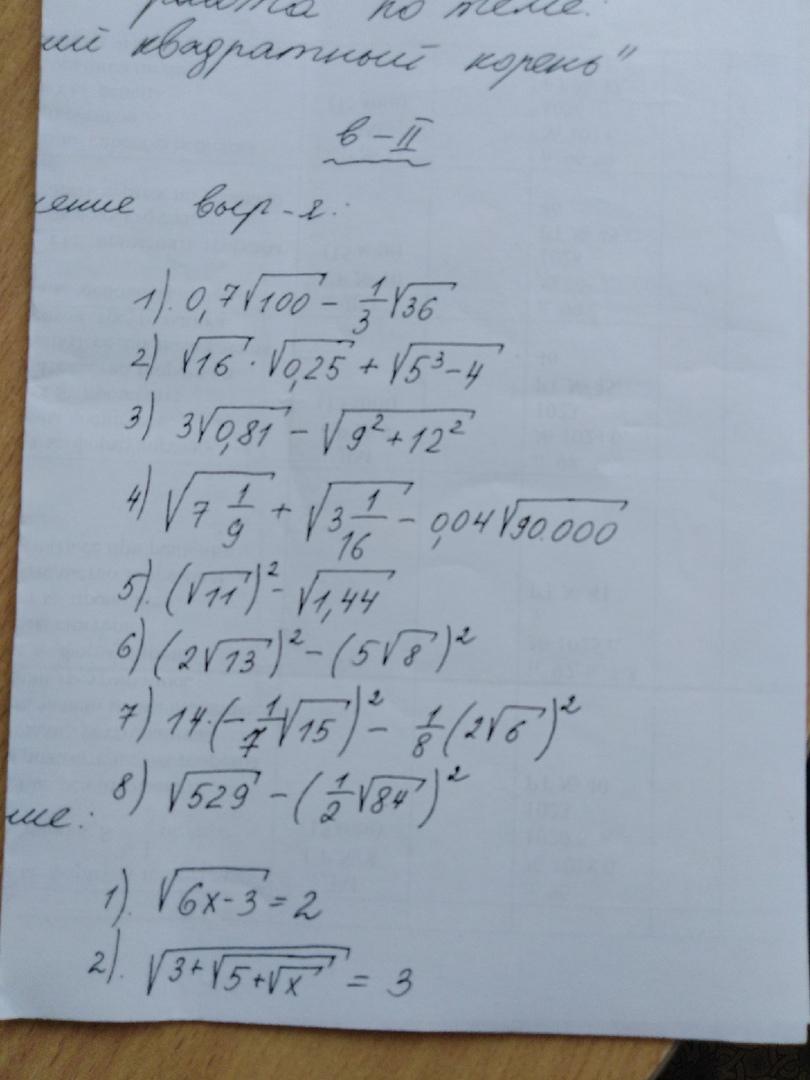 работа по теме:
ий квадратный корень"
в-II
чение выр-я:
1). 0,7√100 - 1/3√36
2) √16 · √0,25 + √(5³-4)
3) 3√0,81 - √(9²+12²)
4) √(7 1/9) + √(3 1/16) - 0,04√90.000
5). (√11)² - √1,44
6) (2√13)² - (5√8)²
7) 14·(-1/7√15)² - 1/8(2√6)²
8) √529 - (1/2√84)²
ние:
1). √(6x-3) = 2
2). √(3+√(5+√x)) = 3